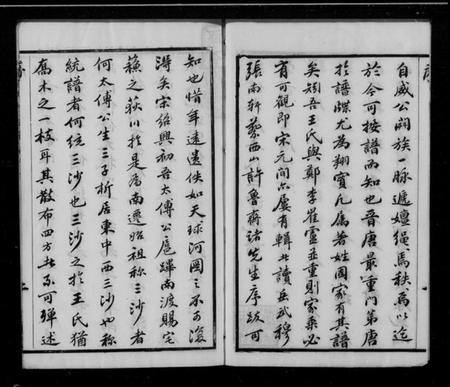 序
自威公嗣族一脉遞嬗繩馬秩焉以迄
於今可按譜而知也晉唐最重門第唐
於譜牒尤為翔實凡属著姓國家有其譜
矣矧吾王氏與鄭李崔盧並重則家乘必
有可觀即宋元間亦屢有輯北讀岳武穆
張南軒蔡西山許魯齋諸先生序跋可
知也惜年遠遺佚如天球河圖之不可復
得矣宋紹興初吾太傅公扈蹕南渡賜宅
蘇之荻川於是為南遷始祖称三沙者
何太傅公生三子析居東中西三沙也称
統譜者何統三沙也三沙之於王氏猶
喬木之一枝耳其散布四方者不可殫述